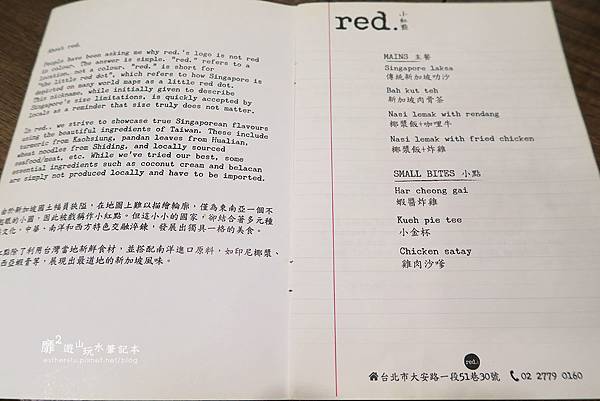 About red.
People have been asking me why red.'s logo is not red
in colour. The answer is simple. "red." refers to a
location, not a colour. "red." is short for
"the little red dot", which refers to how Singapore is
depicted on many world maps as a little red dot.
This nickname, while initially given to describe
Singapore's size limitations, is quickly accepted by
locals as a reminder that size truly does not matter.
In red., we strive to showcase true Singaporean flavours
using the beautiful ingredients of Taiwan. These include
turmeric from Kaohsiung, pandan leaves from Hualian,
ubaot noodles from Shiding, and locally sourced
seafood/meat, etc. While we've tried our best, some
essential ingredients such as coconut cream and belacan
are simply not produced locally and have to be imported.
由於新加坡國土幅員狹隘，在地圖上難以描繪輪廓，僅為東南亞一個不
起眼的小國，因此被戲稱作小紅點。但這小小的國家，卻結合著多元種
文化，中華、南洋和西方特色交融淬鍊，發展出獨具一格的美食。
點除了利用台灣當地新鮮食材，並搭配南洋進口原料，如印尼椰漿、
西亞蝦膏等，展現出最道地的新加坡風味。
靡²遊山玩水筆記本
estherslu.pixnet.net/blog
red. 小紅點
MAINS 主餐
Singapore laksa
傳統新加坡叻沙
Bah kut teh
新加坡肉骨茶
Nasi lemak with rendang
椰漿飯+咖哩牛
Nasi lemak with fried chicken
椰漿飯+炸雞
SMALL BITES 小點
Har cheong gai
蝦醬炸雞
Kueh pie tee
小金杯
Chicken satay
雞肉沙嗲
red.
台北市大安路一段51巷30號 02 2779 0160